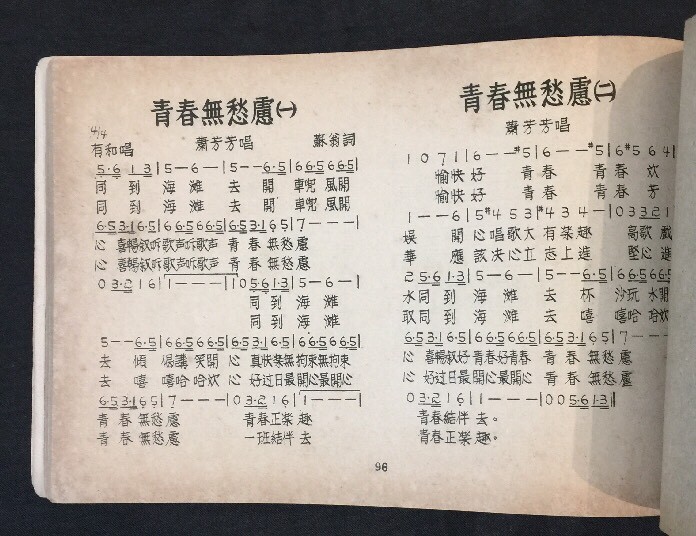 青春無愁慮(一)
4/4
有和唱 蕭芳芳唱 蘇翁詞
5·6 1 3 | 5 - 6 - | 5 - - 6·5 | 6 6·5 6 6·5 |
同到 海 灘 去 開 車兜風開
同到 海 灘 去 開 車兜風開
6·5 3·1 6·5 | 6 6·5 6 6·5 | 6·5 3·1 6 5 | 7 - - - |
心 喜暢敘听歌声听歌声 青春 無愁慮
心 喜暢敘听歌声听歌声 青春 無愁慮
0 3·2 1 6 | 1 - - - | 1 0 5·6 1·3 | 5 - 6 - |
同到 海 灘
同到 海 灘
5 - - 6·5 | 6 6·5 6 6·5 | 6·5 3·1 6·5 | 6 6·5 6 6·5 |
去 傾 偈講笑開 心 真快樂無拘束無拘束
去 嘻 嘻哈哈欢 心 好过日最開心最開心
6·5 3·1 6 5 | 7 - - - | 0 3·2 1 6 | 1 - - - |
青春 無愁慮 青春正樂趣
青春 無愁慮 一班結伴去
青春無愁慮(二)
蕭芳芳唱
1 0 7 1 | 6 - - #5 | 6 - - #5 | 6 #5 6 4 |
愉快好 青春 青春 欢
愉快好 青春 青春 芳
1 - - 6 | 5 #4 5 3 | #4 3 4 - | 0 3 3·2 1
娛 開 心唱歌大 有樂趣 高歌 戲
華 應 該決心立 志上進 堅心 進
2 5·6 1·3 | 5 - 6 - | 5 - - 6·5 | 6 6·5 6 6·5
水同到 海 灘 去 杯 沙玩水開
取同到 海 灘 去 嘻 嘻哈哈欢
6·5 3·1 6·5 | 6 6·5 6 6·5 | 6·5 3·1 6 5 | 7 - - -
心 喜暢敘好青春好青春 青春 無愁慮
心 好过日最開心最開心 青春 無愁慮
0 3·2 1 6 | 1 - - - | 0 0 5·6 1·3 |
青春結伴去。
青春正樂趣。
96